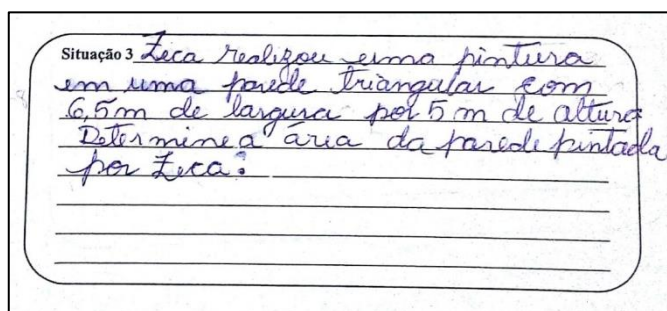 Situação 3 Zeca realizou uma pintura
em uma parede triangular com
6,5m de largura por 5 m de altura
Determine a área da parede pintada
por Zeca?